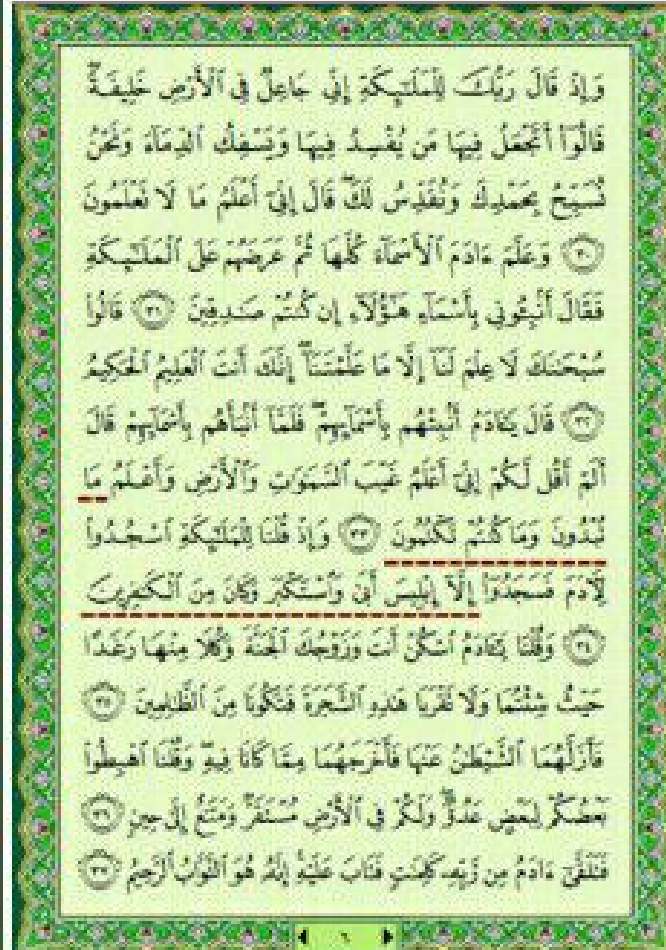 وَإِذْ قَالَ رَبُّكَ لِلْمَلَـٰٓئِكَةِ إِنِّى جَاعِلٌ فِى ٱلْأَرْضِ خَلِيفَةً ۖ
قَالُوٓا۟ أَتَجْعَلُ فِيهَا مَن يُفْسِدُ فِيهَا وَيَسْفِكُ ٱلدِّمَآءَ وَنَحْنُ
نُسَبِّحُ بِحَمْدِكَ وَنُقَدِّسُ لَكَ ۖ قَالَ إِنِّىٓ أَعْلَمُ مَا لَا تَعْلَمُونَ
﴿٣٠﴾ وَعَلَّمَ ءَادَمَ ٱلْأَسْمَآءَ كُلَّهَا ثُمَّ عَرَضَهُمْ عَلَى ٱلْمَلَـٰٓئِكَةِ
فَقَالَ أَنۢبِـُٔونِى بِأَسْمَآءِ هَـٰٓؤُلَآءِ إِن كُنتُمْ صَـٰدِقِينَ ﴿٣١﴾ قَالُوا۟
سُبْحَـٰنَكَ لَا عِلْمَ لَنَآ إِلَّا مَا عَلَّمْتَنَآ ۖ إِنَّكَ أَنتَ ٱلْعَلِيمُ ٱلْحَكِيمُ
﴿٣٢﴾ قَالَ يَـٰٓـَٔادَمُ أَنۢبِئْهُم بِأَسْمَآئِهِمْ ۖ فَلَمَّآ أَنۢبَأَهُم بِأَسْمَآئِهِمْ قَالَ
أَلَمْ أَقُل لَّكُمْ إِنِّىٓ أَعْلَمُ غَيْبَ ٱلسَّمَـٰوَٰتِ وَٱلْأَرْضِ وَأَعْلَمُ مَا
تُبْدُونَ وَمَا كُنتُمْ تَكْتُمُونَ ﴿٣٣﴾ وَإِذْ قُلْنَا لِلْمَلَـٰٓئِكَةِ ٱسْجُدُوا۟
لِـَٔادَمَ فَسَجَدُوٓا۟ إِلَّآ إِبْلِيسَ أَبَىٰ وَٱسْتَكْبَرَ وَكَانَ مِنَ ٱلْكَـٰفِرِينَ
﴿٣٤﴾ وَقُلْنَا يَـٰٓـَٔادَمُ ٱسْكُنْ أَنتَ وَزَوْجُكَ ٱلْجَنَّةَ وَكُلَا مِنْهَا رَغَدًا
حَيْثُ شِئْتُمَا وَلَا تَقْرَبَا هَـٰذِهِ ٱلشَّجَرَةَ فَتَكُونَا مِنَ ٱلظَّـٰلِمِينَ ﴿٣٥﴾
فَأَزَلَّهُمَا ٱلشَّيْطَـٰنُ عَنْهَا فَأَخْرَجَهُمَا مِمَّا كَانَا فِيهِ ۖ وَقُلْنَا ٱهْبِطُوا۟
بَعْضُكُمْ لِبَعْضٍ عَدُوٌّ ۖ وَلَكُمْ فِى ٱلْأَرْضِ مُسْتَقَرٌّ وَمَتَـٰعٌ إِلَىٰ حِينٍ ﴿٣٦﴾
فَتَلَقَّىٰٓ ءَادَمُ مِن رَّبِّهِۦ كَلِمَـٰتٍ فَتَابَ عَلَيْهِ ۚ إِنَّهُۥ هُوَ ٱلتَّوَّابُ ٱلرَّحِيمُ ﴿٣٧﴾
٦